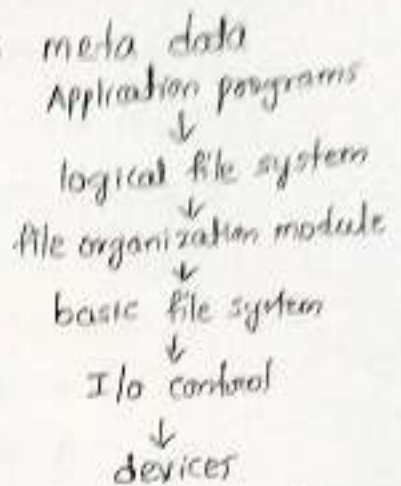 meta data
Application programs
↓
logical file system
↓
file organization module
↓
basic file system
↓
I/o control
↓
devices